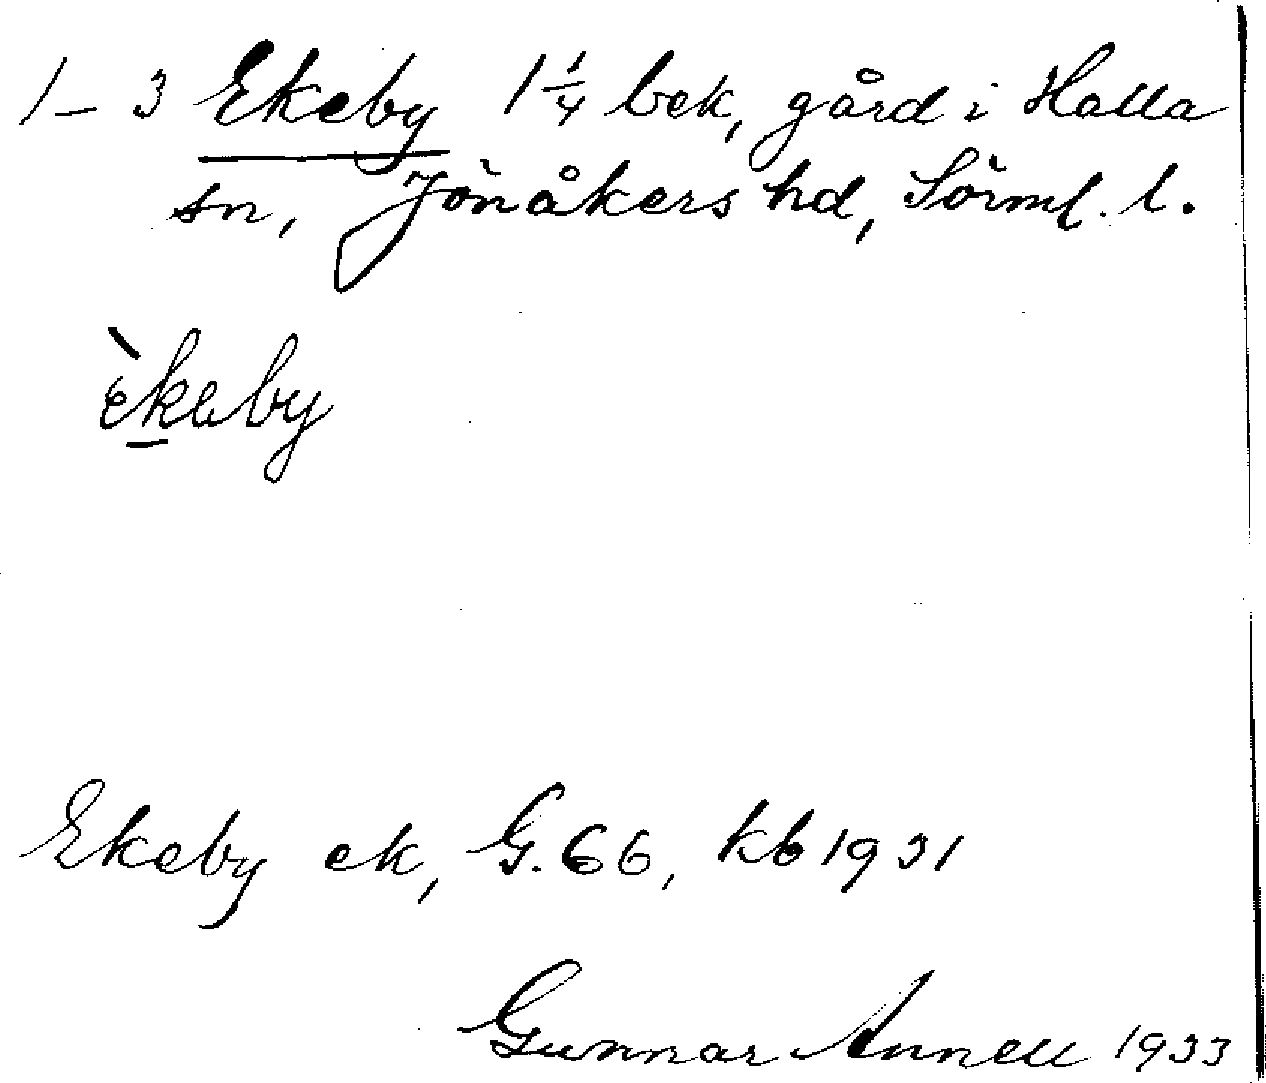 1–3 Ekeby 1 1/4 bek, gård i Halla
sn, Jönåkers hd, Sörml. l.
èkeby
Ekeby ek, G. 66, kb 1931
Gunnar Annell 1933